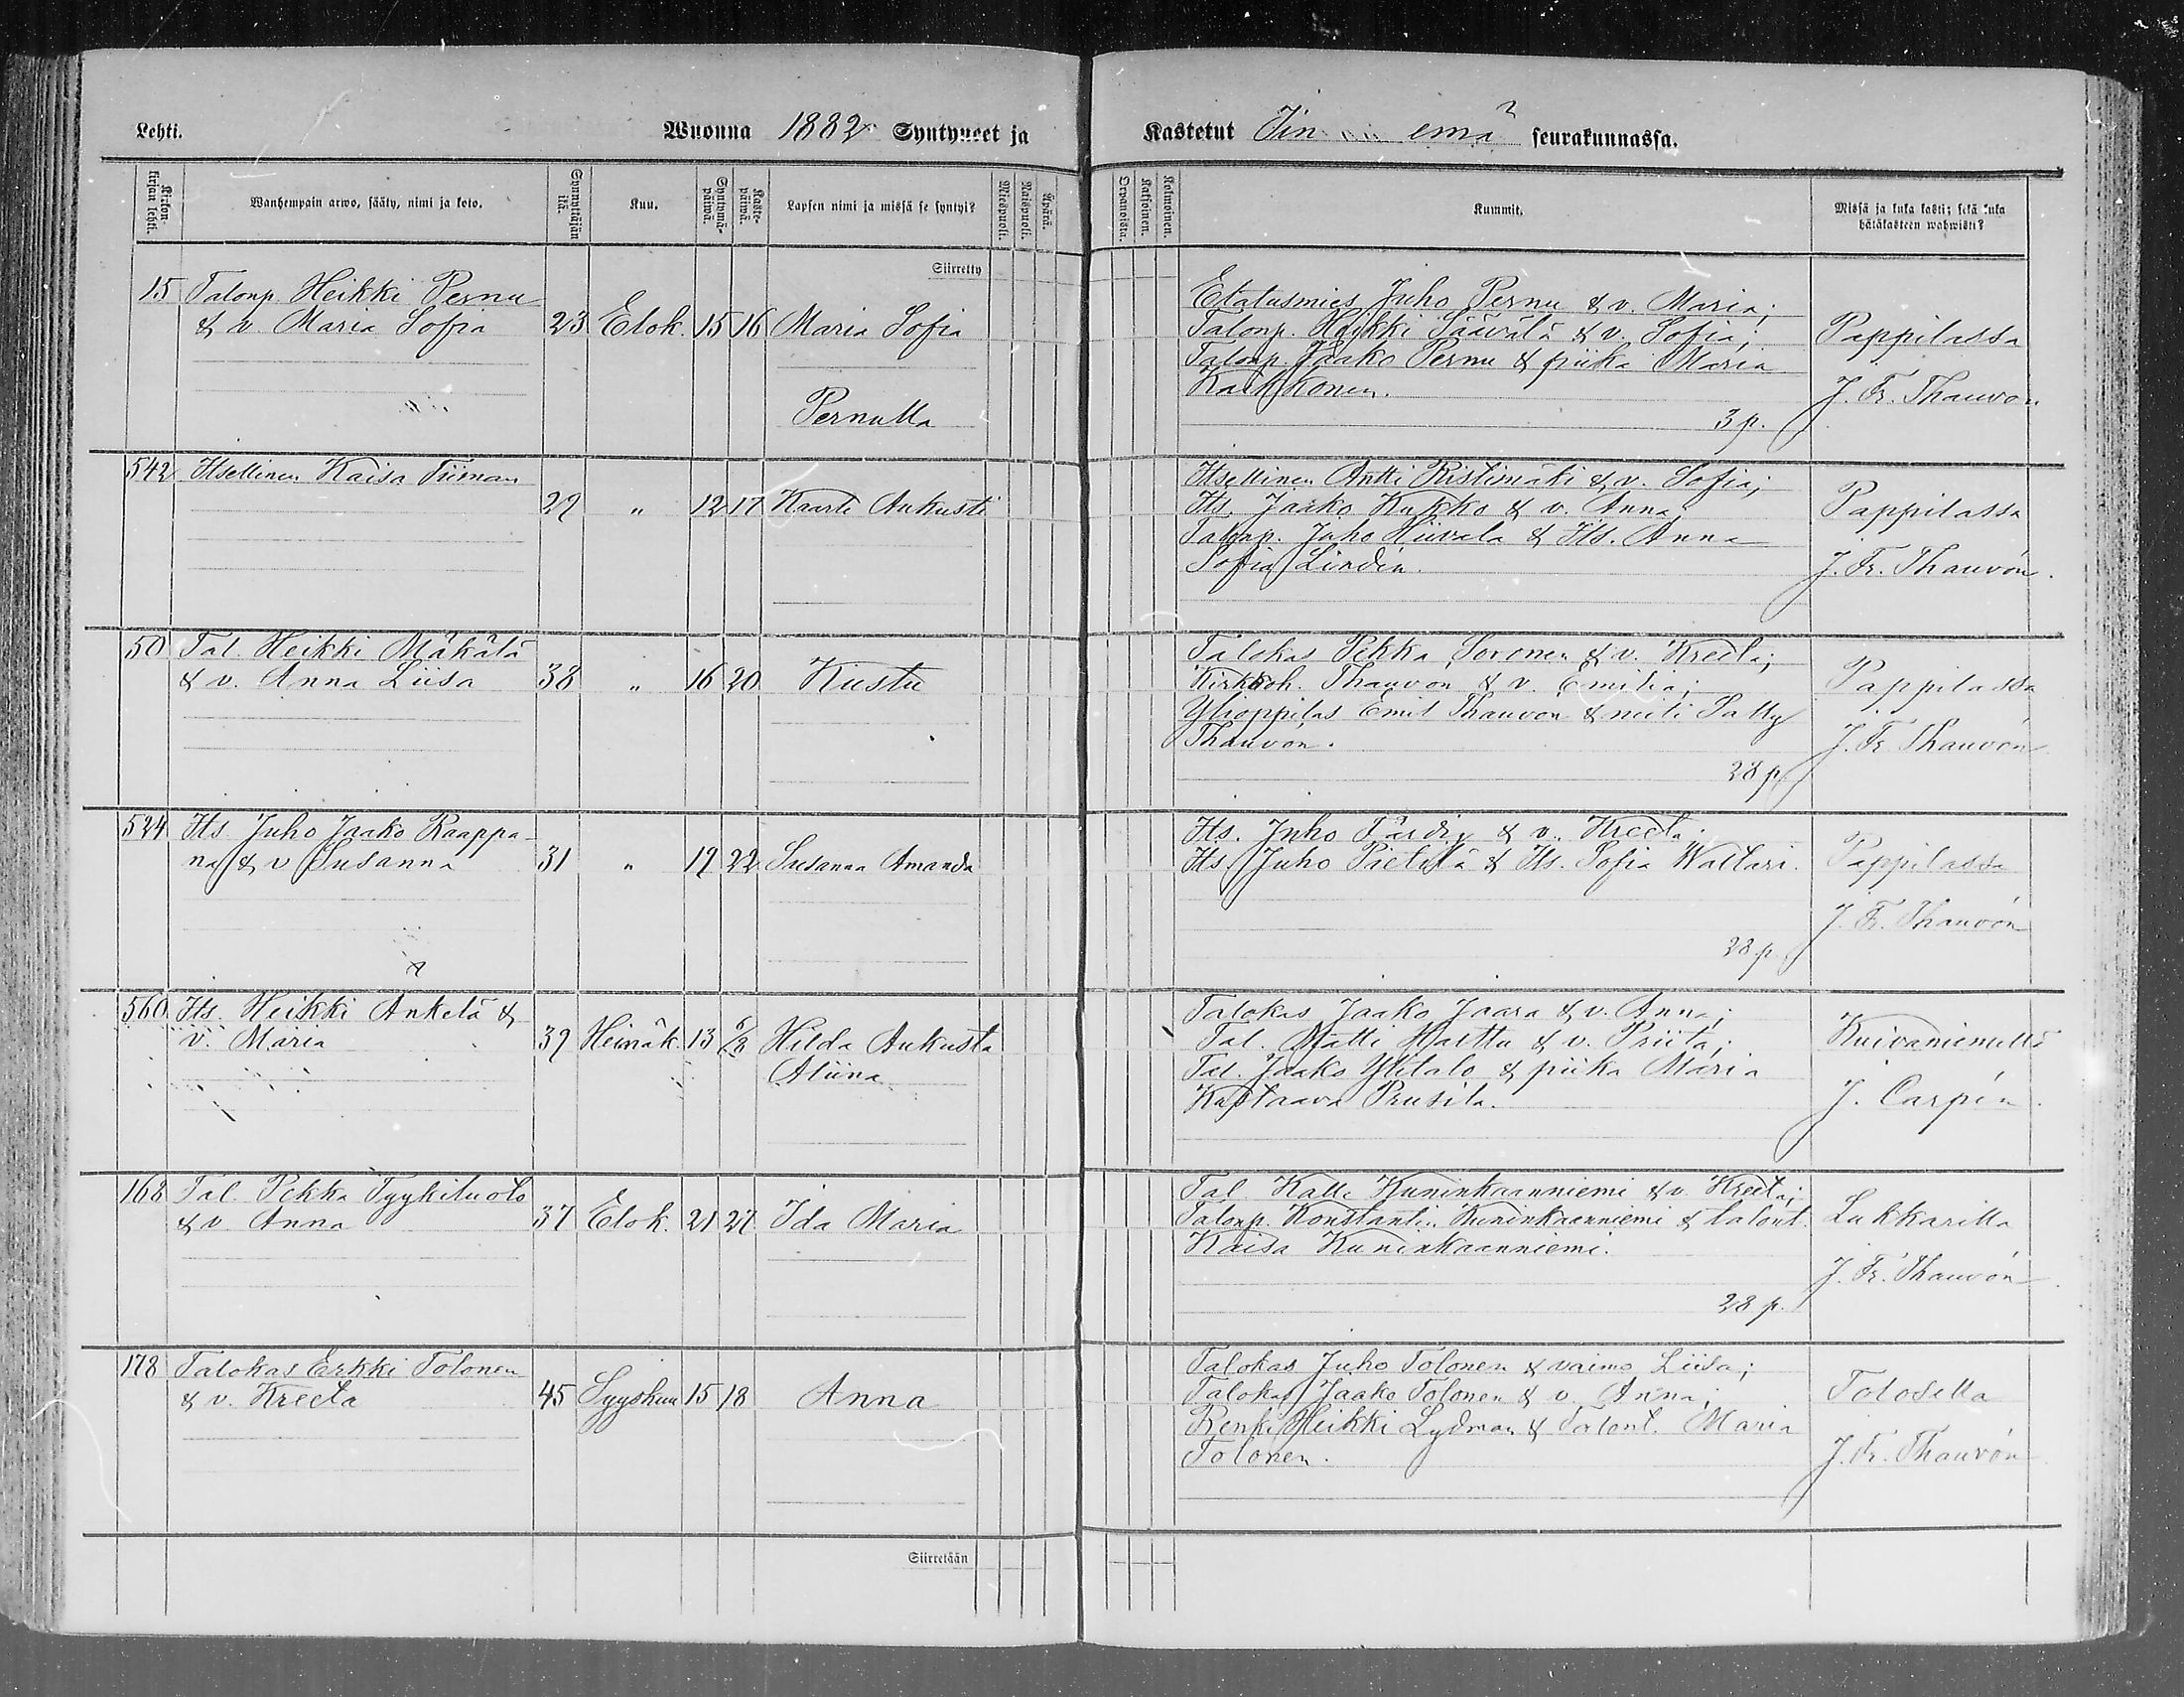 Lehti. Wuonna 1882 Syntyneet ja
Kastetut Iin emä seurakunnassa.
Kriston-kirjan lehti.
Wanhempain arwo, sääty, nimi ja koto.
Synnyttäjän ikä.
Kuu.
Syntymä-päiwä.
Kaste-päiwä.
Lapsen nimi ja missä se syntyi?
Miespuoli.
Naispuoli.
Äpärä.
Orwanoista.
Kaksoinen.
Kolmoinen.
Kummit.
Missä ja kuka kasti; sekä kuka
hätäkasteen wahwisti?
Siirretty
15 Talonp. Heikki Pernu
& v. Maria Sofia 23 Elok. 15 16 Maria Sofia
Pernulla
Etatusmies Juho Pernu & v. Maria;
Talonp. Heikki Säävälä & v. Sofia;
Talonp. Jaako Pernu & piika Maria
Kaikkonen.
3 p.
Pappilassa
J. Fr. Thauvón
542 Itsellinen Kaisa Tiiman
29 " 12 17 Kaarli Aukusti
Itsellinen Antti Ristimäki & v. Sofia;
Its. Jaako Kukko & v. Anna;
Talonp. Juho Hiivala & Its. Anna
Sofia Lindin.
Pappilassa
J. Fr. Thauvón.
50 Tal. Heikki Mäkälä
& v. Anna Liisa 38 " 16 20 Kustu
Talokas Pekka Soronen & v. Kreeta;
Kirkkoh. Thauvon & v. Emilia;
Ylioppilas Emil Thauvon & neiti Sally
Thauvón.
28 p.
Pappilassa
J. Fr. Thauvón
524 Its. Juho Jaako Raappa-
na & v. Susanna 31 " 19 22 Susanna Amanda
Its. Juho Färdig & v. Kreeta;
Its. Juho Pietilä & Its. Sofia Wallari.
28 p.
Pappilassa
J. Fr. Thauvón
560 Its. Heikki Ankelä &
v. Maria 39 Heinäk. 13 6/8 Hilda Aukusta
Aliina
Talokas Jaako Jaara & v. Anna;
Tal. Matti Martta & v. Priita;
Tal. Jaako Ylitalo & piika Maria
Kustaava Prusila.
Kuivaniemellä
J. Carpén.
168 Tal. Pekka Tyykiluoto
& v. Anna 37 Elok. 21 27 Ida Maria
Tal. Kalle Kuninkaanniemi & v. Kreeta;
Talonp. Konstantin Kuninkaanniemi & talont.
Kaisa Kuninkaanniemi.
28 p.
Lukkarilla
J. Fr. Thauvón
178 Talokas Erkki Tolonen
& v. Kreeta 45 Syyskuu 15 18 Anna
Talokas Juho Tolonen & vaimo Liisa;
Talokas Jaako Tolonen & v. Anna;
Renki Heikki Lydman & Talont. Maria
Tolonen.
Tolosella
J. Fr. Thauvón
Siirretään